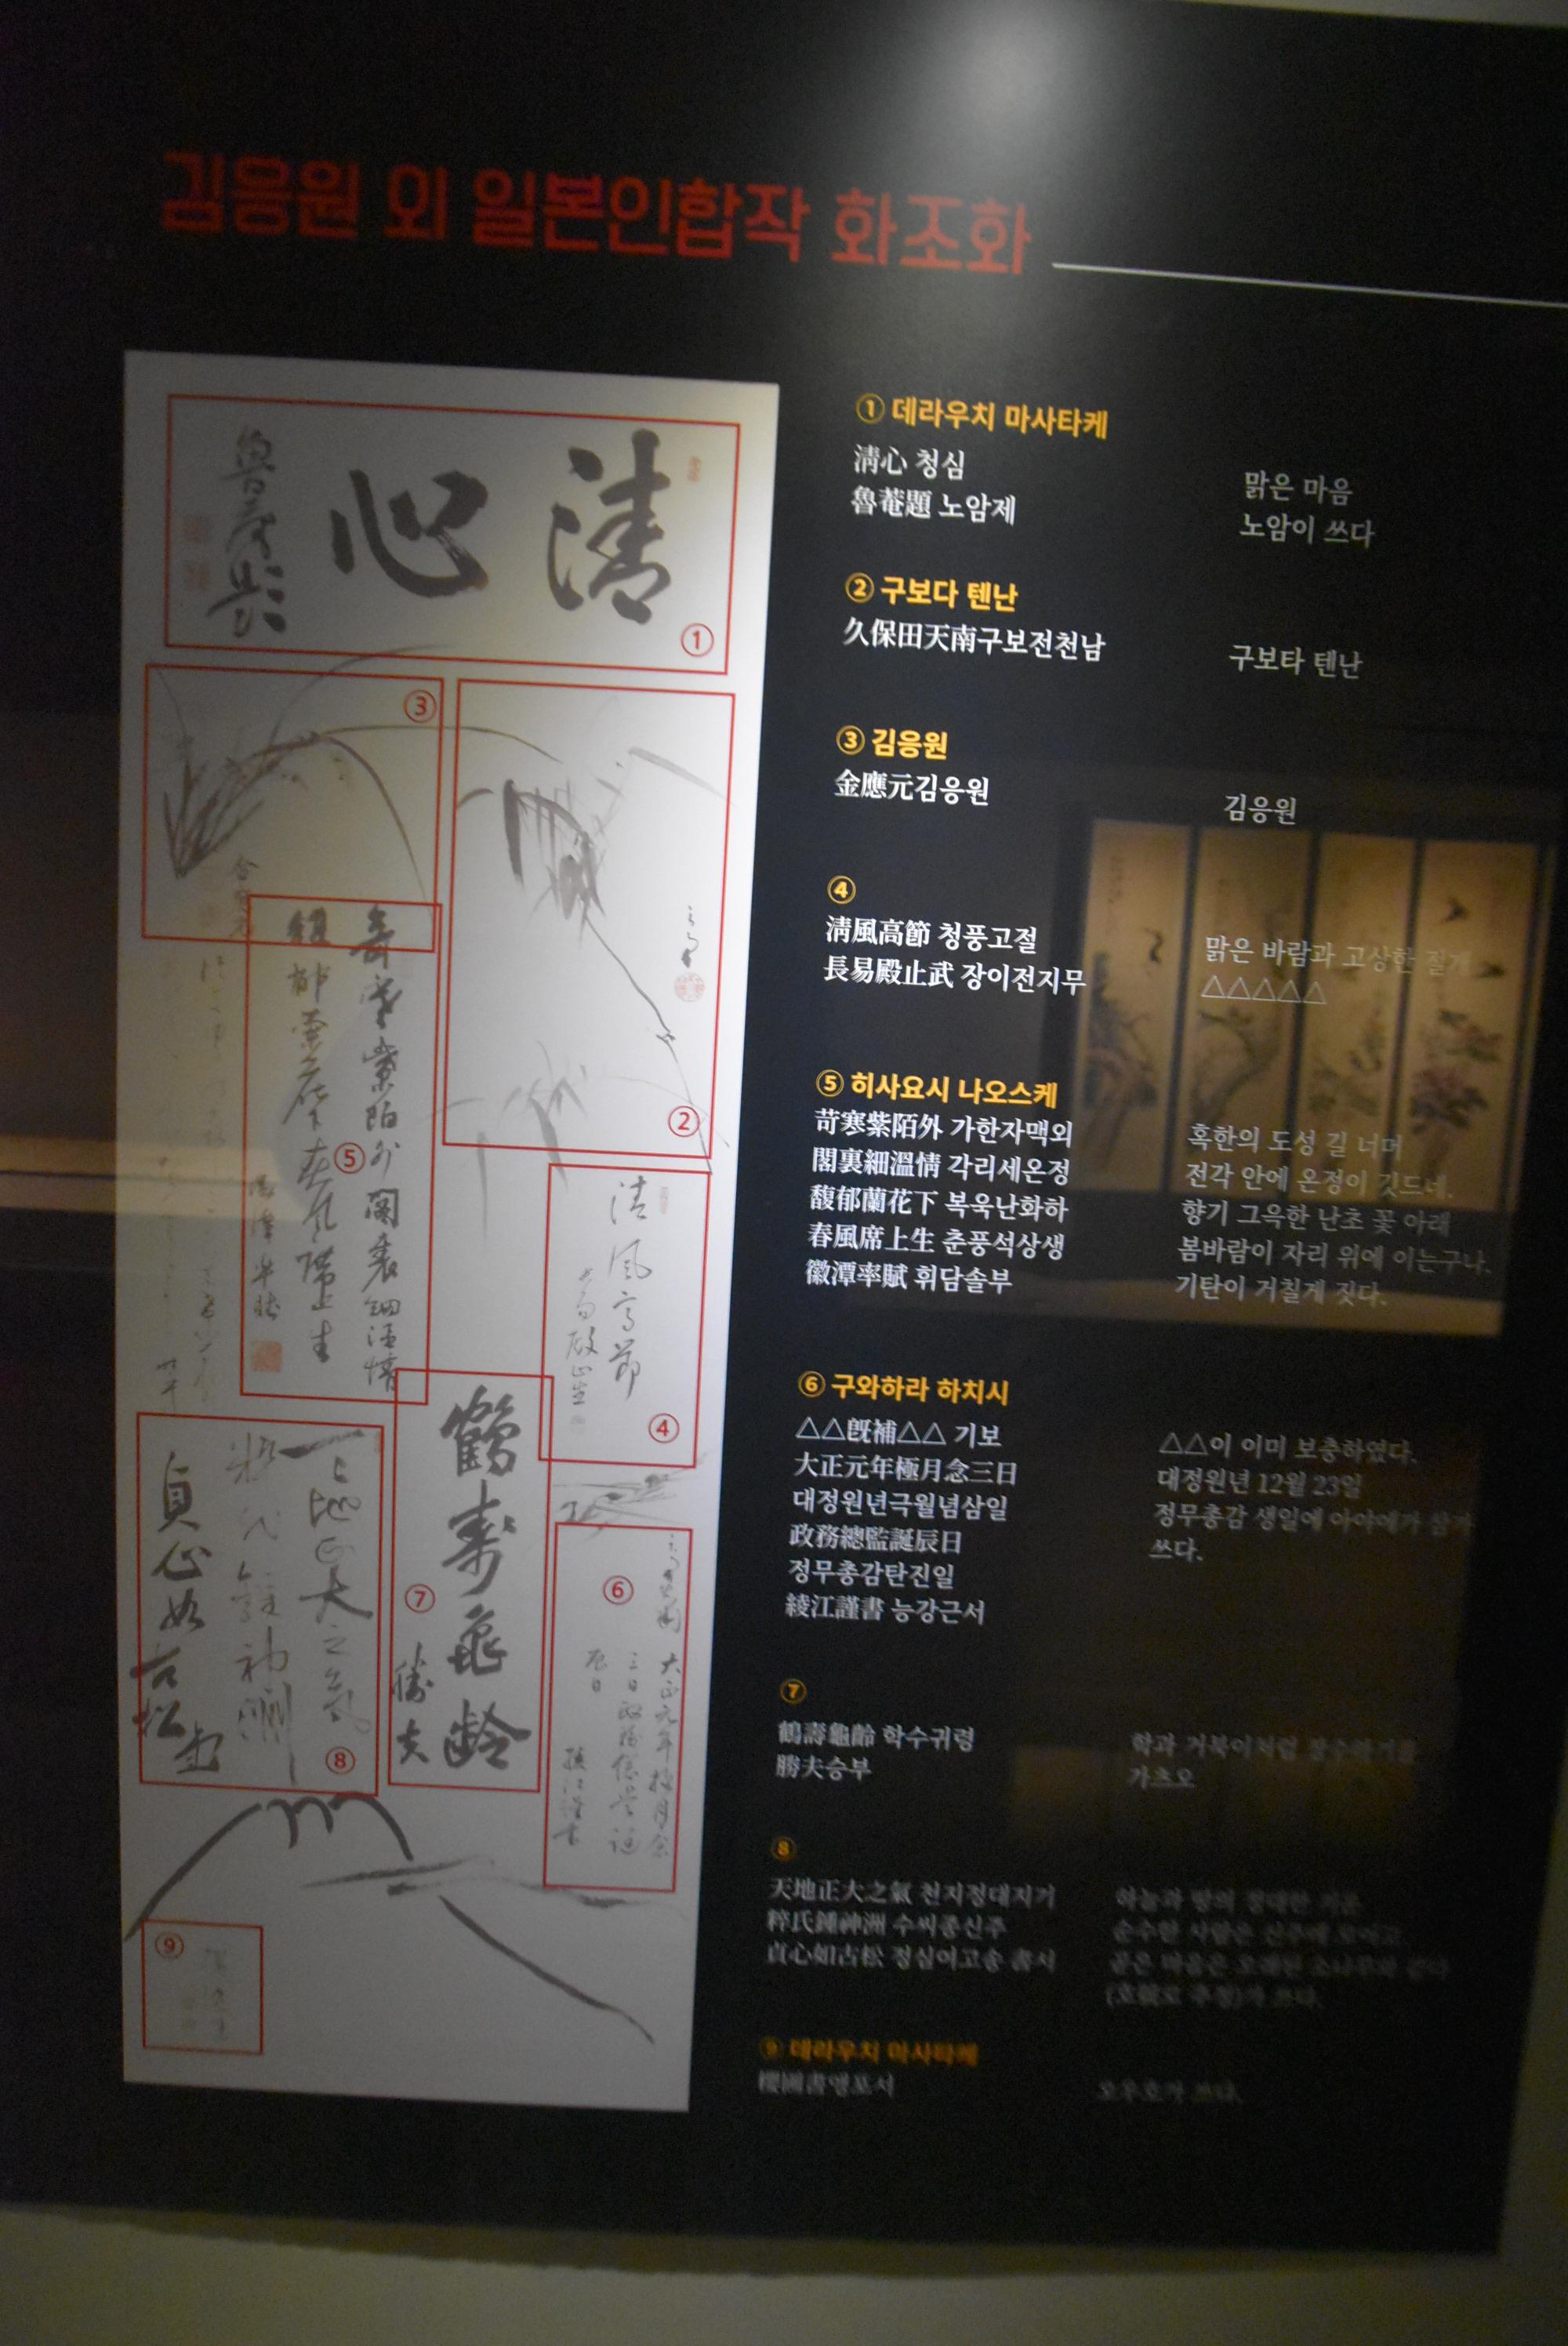 김응원 외 일본인합작 화조화
① 데라우치 마사타케
淸心 청심
맑은 마음
魯菴題 노암제
노암이 쓰다
② 구보다 텐난
久保田天南구보전천남
구보타 텐난
③ 김응원
金應元김응원
김응원
④
淸風高節 청풍고절
맑은 바람과 고상한 절개
長易殿止武 장이전지무
△△△△△
⑤ 히사요시 나오스케
苛寒紫陌外 가한자맥외
혹한의 도성 길 너머
閣裏細溫情 각리세온정
전각 안에 온정이 깃드네.
馥郁蘭花下 복욱난화하
향기 그윽한 난초 꽃 아래
春風席上生 춘풍석상생
봄바람이 자리 위에 이는구나.
徽潭率賦 휘담솔부
기탄이 거칠게 짓다.
⑥ 구와하라 하치시
△△旣補△△ 기보
△△이 이미 보충하였다.
大正元年極月念三日
대정원년 12월 23일
대정원년극월념삼일
정무총감 생일에 아야에가 삼가
政務總監誕辰日
쓰다.
정무총감탄진일
綾江謹書 능강근서
⑦
鶴壽龜齡 학수귀령
학과 거북이처럼
勝夫승부
가츠오
⑧
天地正大之氣 천지정대지기
하늘과 땅의 정대한 기운
粹氏鍾神洲 수씨종신주
貞心如古松 정심여고송
⑨ 데라우치 마사타케
淸心
魯菴題
①
③
②
⑤
淸風高節
④
鶴壽龜齡
勝夫
⑦
⑥
大正元年極月念
貞心如古松
⑧
⑨